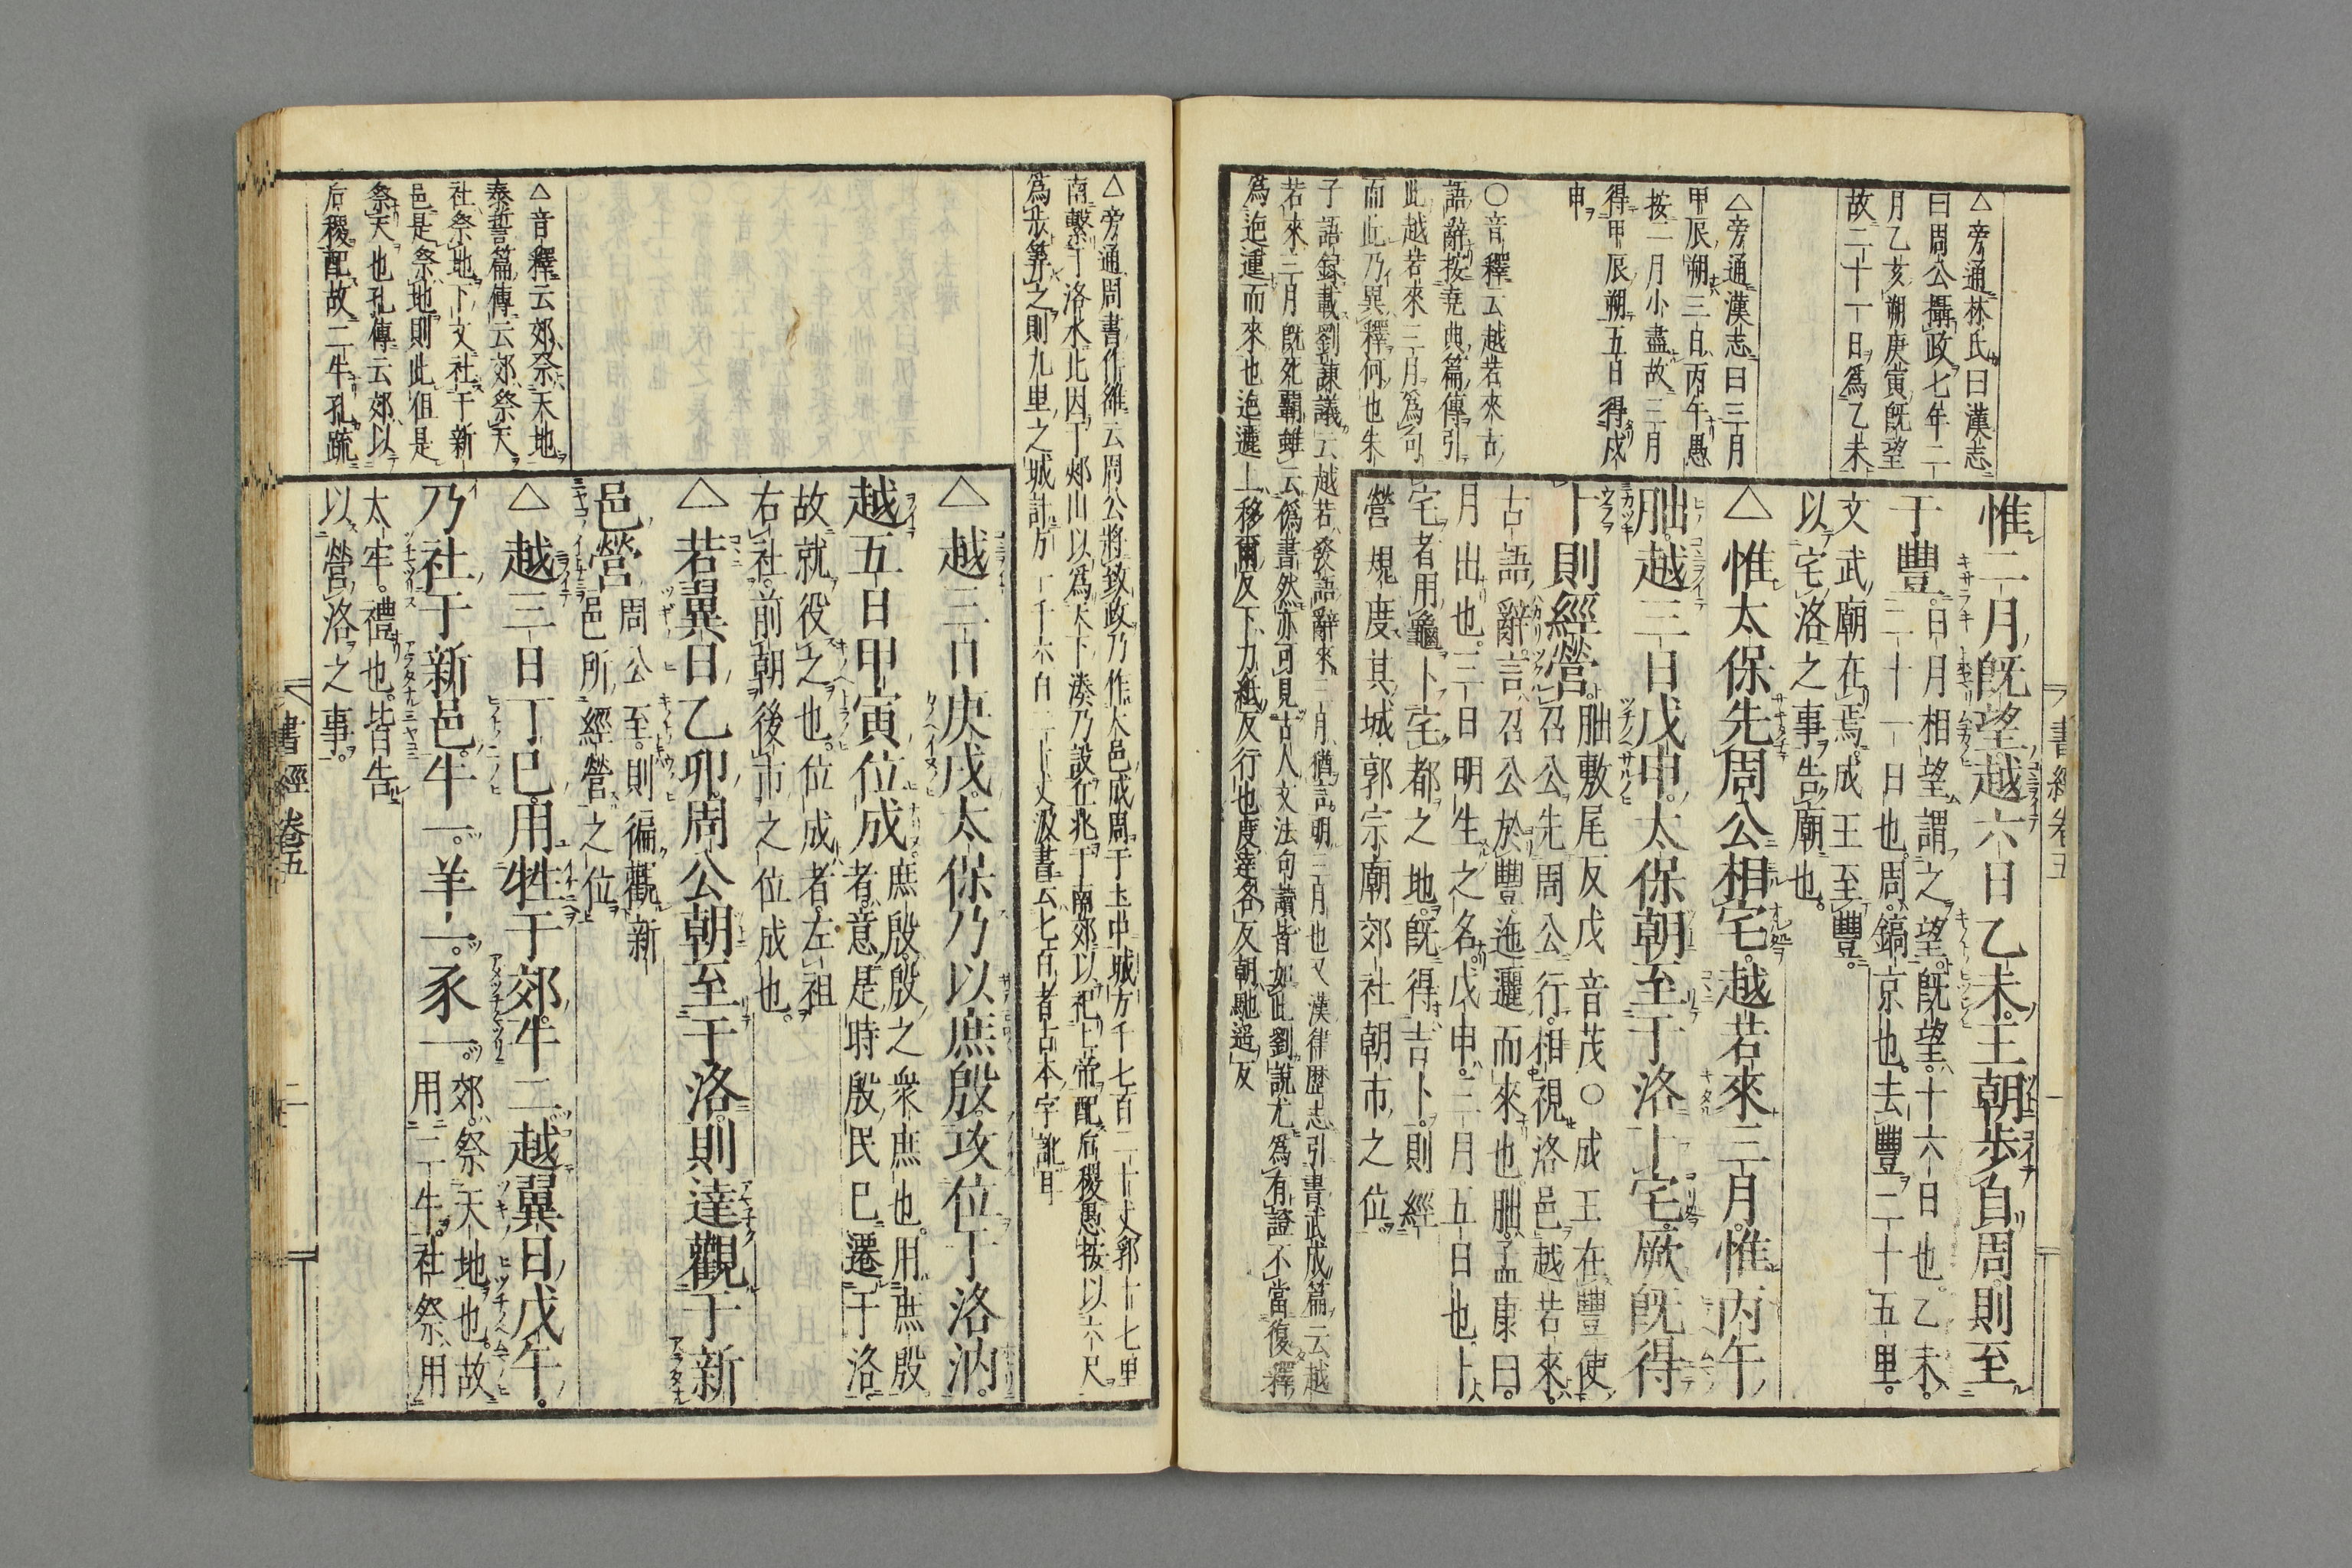 △旁通林氏曰漢志
曰周公攝政七年二
月乙亥朔庚寅旣望
故二十一日爲乙未
△旁通漢志曰三月
甲辰朔三日丙午愚
按二月小盡故三月
得甲辰朔五日得戊
申
○音釋云越若來古
語辭按堯典篇傳引
此越若來三月爲可
而此乃異釋何也朱
子語錄載劉諫議云越若發語辭來三月猶言明三月也又漢律歷志引書武成篇云越
若來三月旣死霸雖云僞書然亦可見古人文法句讀皆如此劉說尤爲有證不當復釋
爲迆邐而來也迆邐上移爾反下力紙反行也度達各反朝馳遥反
惟二月旣望越六日乙未王朝步自周則至
于豐日月相望謂之望旣望十六日也乙未
二十一日也周鎬京也去豐二十五里
文武廟在焉成王至豐
以宅洛之事告廟也
△惟太保先周公相宅越若來三月惟丙午
朏越三日戊申太保朝至于洛卜宅厥旣得
卜則經營朏敷尾反戊音茂○成王在豐使
召公先周公行相視洛邑越若來
古語辭言召公於豐迤邐而來也朏孟康曰
月出也三日明生之名戊申三月五日也卜
宅者用龜卜宅都之地旣得吉卜則經
營規度其城郭宗廟郊社朝市之位
書經卷五
一
△旁通周書作雒云周公將致政乃作大邑成周于土中城方千七百二十丈郛十七里
南繫于洛水北因于郟山以爲天下湊乃設丘兆于南郊以祀上帝配后稷愚按以六尺
爲步筭之則九里之城計方一千六百二十丈汲書云七百者古本字訛耳
△越三日庚戌太保乃以庶殷攻位于洛汭
越五日甲寅位成庶殷殷之衆庶也用庶殷
者意是時殷民已遷于洛
故就役之也位成者左祖
右社前朝後市之位成也
△若翼日乙卯周公朝至于洛則達觀于新
邑營周公至則徧觀新
邑所經營之位
△越三日丁巳用牲于郊牛二越翼日戊午
乃社于新邑牛一羊一豕一郊祭天地也故
用二牛社祭用
太牢禮也皆告
以營洛之事
△音釋云郊祭天地
泰誓篇傳云郊祭天
社祭地下文社于新
邑是祭地則此但是
祭天也孔傳云郊以
后稷配故二牛孔疏
書經卷五
二